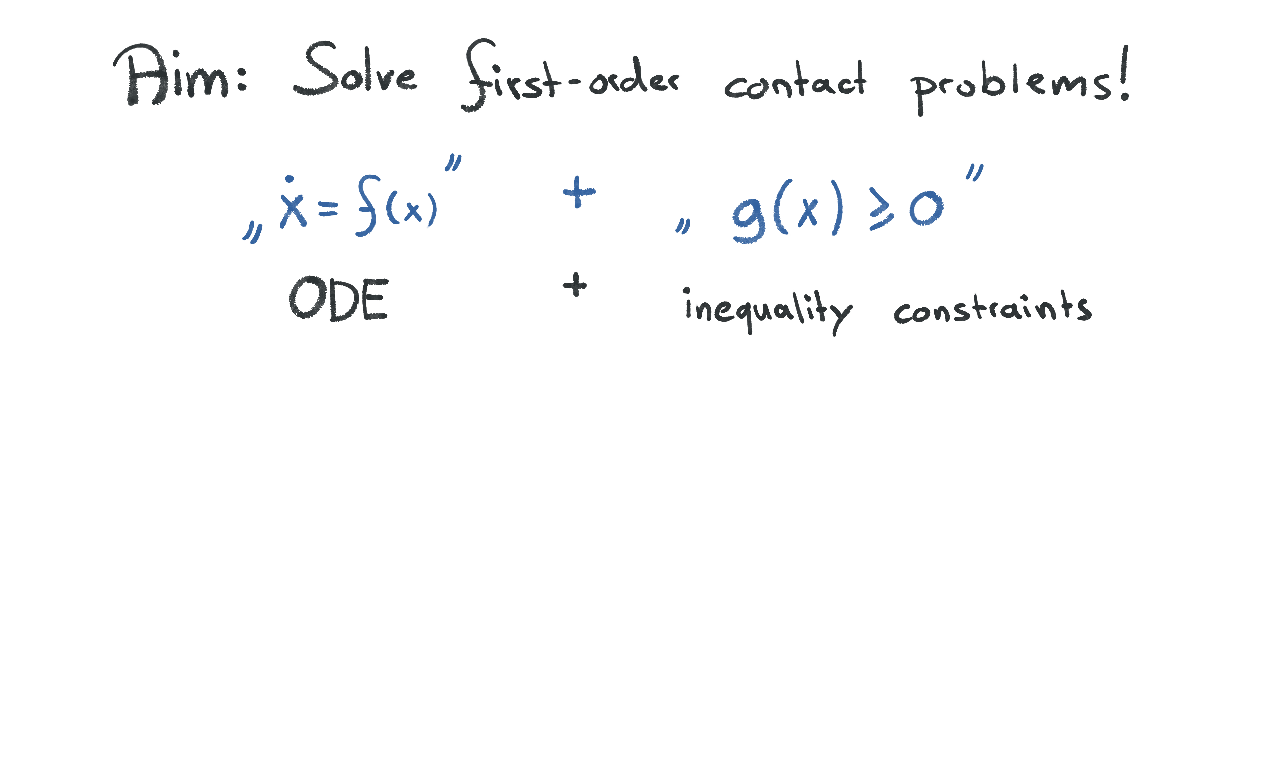 Aim: Solve first-order contact problems!
„ẋ = f(x)” + „g(x) ⩾ 0”
ODE + inequality constraints